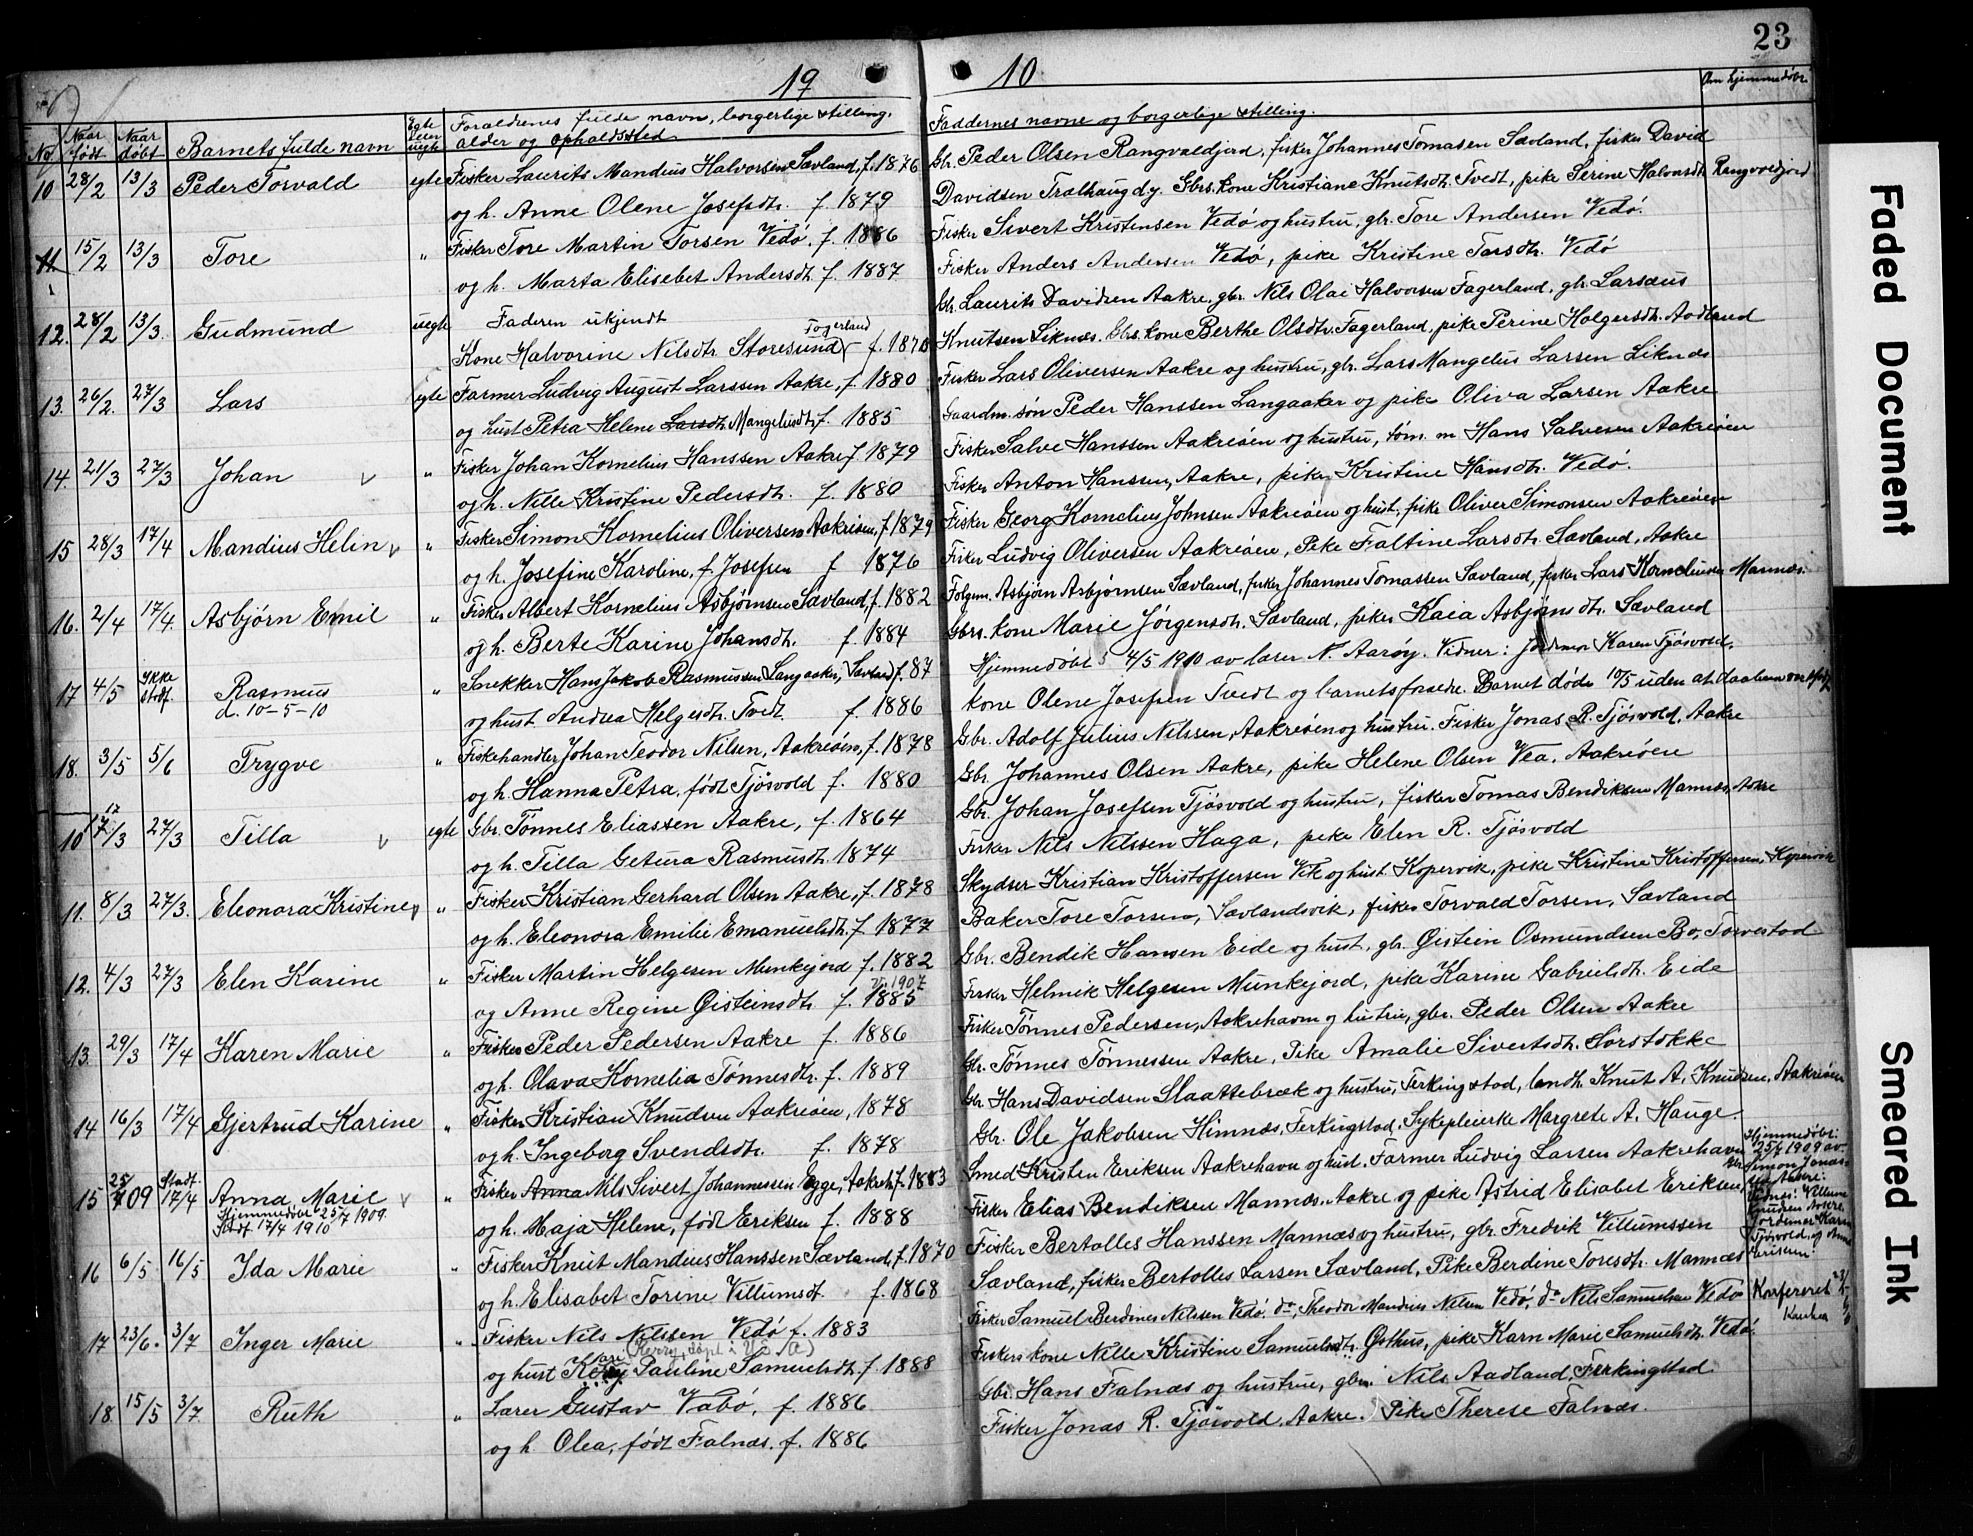 23
19 10
Om hjemmedøbt
No. Naar født Naar døbt Barnets fulde navn Egte eller uegte Forældrenes fulde navn, borgerlige stilling, alder og opholdssted Faddernes navne og borgerlige stilling.
10 28/2 13/3 Peder Torvald egte Fisker Laurits Mandius Halvorsen Sævland, f. 1876 Gbr. Peder Olsen Rangvaldjord, fisker Johannes Tomasen Sævland, fisker David
og h. Anne Olene Josefsdtr. f. 1879 Davidsen Tralhaug d.y. Gbrs. kone Kristiane Knutsdtr. Tvedt, pike Serine Halvorsdtr. Rangvaldjord
11 15/2 13/3 Tore " Fisker Tore Martin Torsen Vedø, f. 1886 Fisker Sivert Kristensen Vedø og hustru, gbr. Tore Andersen Vedø.
og h. Marta Elisebet Andersdtr f. 1887 Fisker Anders Andersen Vedø, pike Kristine Torsdtr. Vedø
12. 28/2 13/3. Gudmund uegte Faderen ukjendt Gbr. Laurits Davidsen Aakre, gbr. Nils Olai Halvorsen Fagerland, gbr. Larsæus
Kone Halvorine Nilsdtr. Storesund Fagerland f. 1878 Knutsen Liknæs. Gbrs. kone Berthe Olsdtr. Fagerland, pike Perine Holgersdtr. Aadland
13. 26/2. 27/3 Lars egte Farmer Ludvig August Larssen Aakre, f. 1880 Fisker Lars Oliversen Aakre og hustru, gbr. Lars Mangelus Larsen Liknæs
og hust Petra Helene Larsdtr. Mangelusdtr, f. 1885 Gaardm. søn Peder Hanssen Langaaker og pike Oliva Larsen Aakre
14. 21/3 27/3 Johan v " Fisker Johan Kornelius Hanssen Aakre f 1879 Fisker Salve Hanssen Aakreøen og hustru, tøm. m Hans Salvesen Aakreøen
og h. Nille Kristine Pedersdtr. f. 1880 Fisker Anton Hanssen, Aakre, pike Kristine Hansdtr. Vedø.
15 28/3 17/4 Mandius Helin v " Fisker Simon Kornelius Oliversen Aakreøen, f 1879 Fisker Georg Kornelius Johnsen Aakreøen og hust, pike Oliver Simonsen Aakreøen
og h. Josefine Karoline, f Josefsen f 1876 Fisker Ludvig Oliversen Aakreøen, Pike Faltine Larsdtr. Sævland, Aakre
16. 2/4 17/4. Asbjørn Emil " Fisker Albert Kornelius Asbjørnsen Sævland, f. 1882 Folgem. Asbjørn Asbjørnsen Sævland, fisker Johannes Tomassen Sævland, fisker Lars Korneliussen Mannæs.
og h. Berte Karine Johansdtr. f. 1884 Gbrs. kone Marie Jørgensdtr. Sævland, pike Kaia Asbjørnsdtr. Sævland
17 4/5 Ikke stadf. Rasmus " Snekker Hans Jakob Rasmussen Langaaker, Sævland f. 87 Hjemmedøbt 4/5 1910 av lærer N. Aarøy. Vidner: Jordmor Karen Tjøsvold,
d. 10-5-10 og hust Andrea Helgesdtr. Tvedt. f. 1886 kone Olene Josefsen Tvedt og barnets forældre. Barnet døde 10/5 uden at daaben var stadf.
18. 3/5 5/6 Trygve " Fiskehandler Johan Teodor Nilsen, Aakreøen, f. 1878 Gbr. Adolf Julius Nilssen, Aakreøen og hustru. Fisker Jonas R. Tjøsvold, Aakre
og h. Hanna Petra, født Tjøsvold f. 1880 Gbr. Johannes Olsen Aakre, pike Helene Olsen Vea, Aakreøen
10 17/3 27/3 Tilla v egte Gbr. Tønnes Eliassen Aakre, f. 1864 Gbr. Johan Josefsen Tjøsvold og hustru, fisker Tomas Bendiksen Mannæs, Aakre
og h. Tilla Getura Rasmusdtr. 1874 Fisker Nils Nilssen Haga, pike Elen R. Tjøsvold
11. 8/3 27/3. Eleonora Kristine v " Fisker Kristian Gerhard Olsen Aakre, f. 1878 Skydser Kristian Kristoffersen Vik og hust. Kopervik, pike Kristine Kristoffersen, Kopervik
og h. Eleonora Emilie Emanuelsdtr. f 1877 Baker Tore Torsen, Sævlandsvik, fisker Torvald Torsen, Sævland
12. 4/3 27/3 Elen Karine " Fisker Martin Helgesen Munkejord f. 1882 Gbr. Bendik Hansen Eide og hust, gbr. Øistein Osmundsen Bø, Torvestad
og Anne Regine Øisteinsdtr f. 1885 Vg. 1907 Fisker Helmik Helgesen Munkejord, pike Karine Gabrielsdtr. Eide
13. 29/3 17/4 Karen Marie " Fisker Peder Pedersen Aakre f. 1886 Fisker Tønnes Pedersen, Aakrehavn og hustru, gbr. Peder Olsen Aakre
og h. Olava Kornelia Tønnesdtr. f. 1889 Gbr. Tønnes Tønnessen Aakre, Pike Amalie Sivertsdtr. Sørstokke
14 16/3 17/4 Gjertrud Karine " Fisker Kristian Knudsen Aakreøen, 1878 Gbr Hans Davidsen Slaattebræk og hustru, Ferkingstad, landh. Knut A. Knudsen, Aakreøen
og h. Ingeborg Svendsdtr. f. 1878 Gbr. Ole Jakobsen Himnæs, Ferkingstad, Sykepleierske Margrete A. Hauge
15 25/7 09 Stadf. 17/4 Anna Marie v " Fisker Anna Nils Sivert Johannessen Egge, Aakreh, f. 1883 Smed Kristen Eriksen Aakrehavn og hust. Farmer Ludvig Larsen Aakrehavn Hjemmedøbt: 25/7 1909 av Simon Jonas-
Hjemmedøbt 25/7 1909. Stadf. 17/4 1910 og h. Maja Helene, født Eriksen f. 1888 Fisker Elias Bendiksen Mannæs, Aakre og pike Astrid Elisabet Eriksen Aakre. Vidner: Villum Knudsen Aakre, Jordemor Karen Tjøsvold, og Anna Eriksen.
16 6/5. 16/5 Ida Marie " Fisker Knut Mandius Hanssen Sævland, f. 1870 Fisker Bertolles Hanssen Mannæs og hustru, gbr. Fredrik Villumssen
og h. Elisabet Torine Villumsdt. f. 1868 Sævland, fisker Bertolles Larsen Sævland, Pike Berdine Toresdtr. Mannæs
17 23/6. 3/7 Inger Marie " Fisker Nils Nilssen Vedø f. 1883 Fisker Samuel Berdines Nilssen Vedø, do. Theodor Mandius Nilsen Vedø, do Nils Samuelsen Vedø Konfereret
(Kerry, døpt i U.S.A)
og hust Kari Pauline Samuelsdtr. f. 1888 Fiskers kone Nille Kristine Samuelsdtr. Østhus, pike Karn Marie Samuelsdtr. Vedø.
18. 15/5 3/7. Ruth " Lærer Gustav Vabø, f. 1886 Gbr. Hans Falnæs og hustru, gbr. Nils Aadland, Ferkingstad
og h. Olea, født Falnæs. f. 1886 Fisker Jonas R. Tjøsvold, Aakre. Pike Therese Falnæs.
Faded Document
Smeared Ink